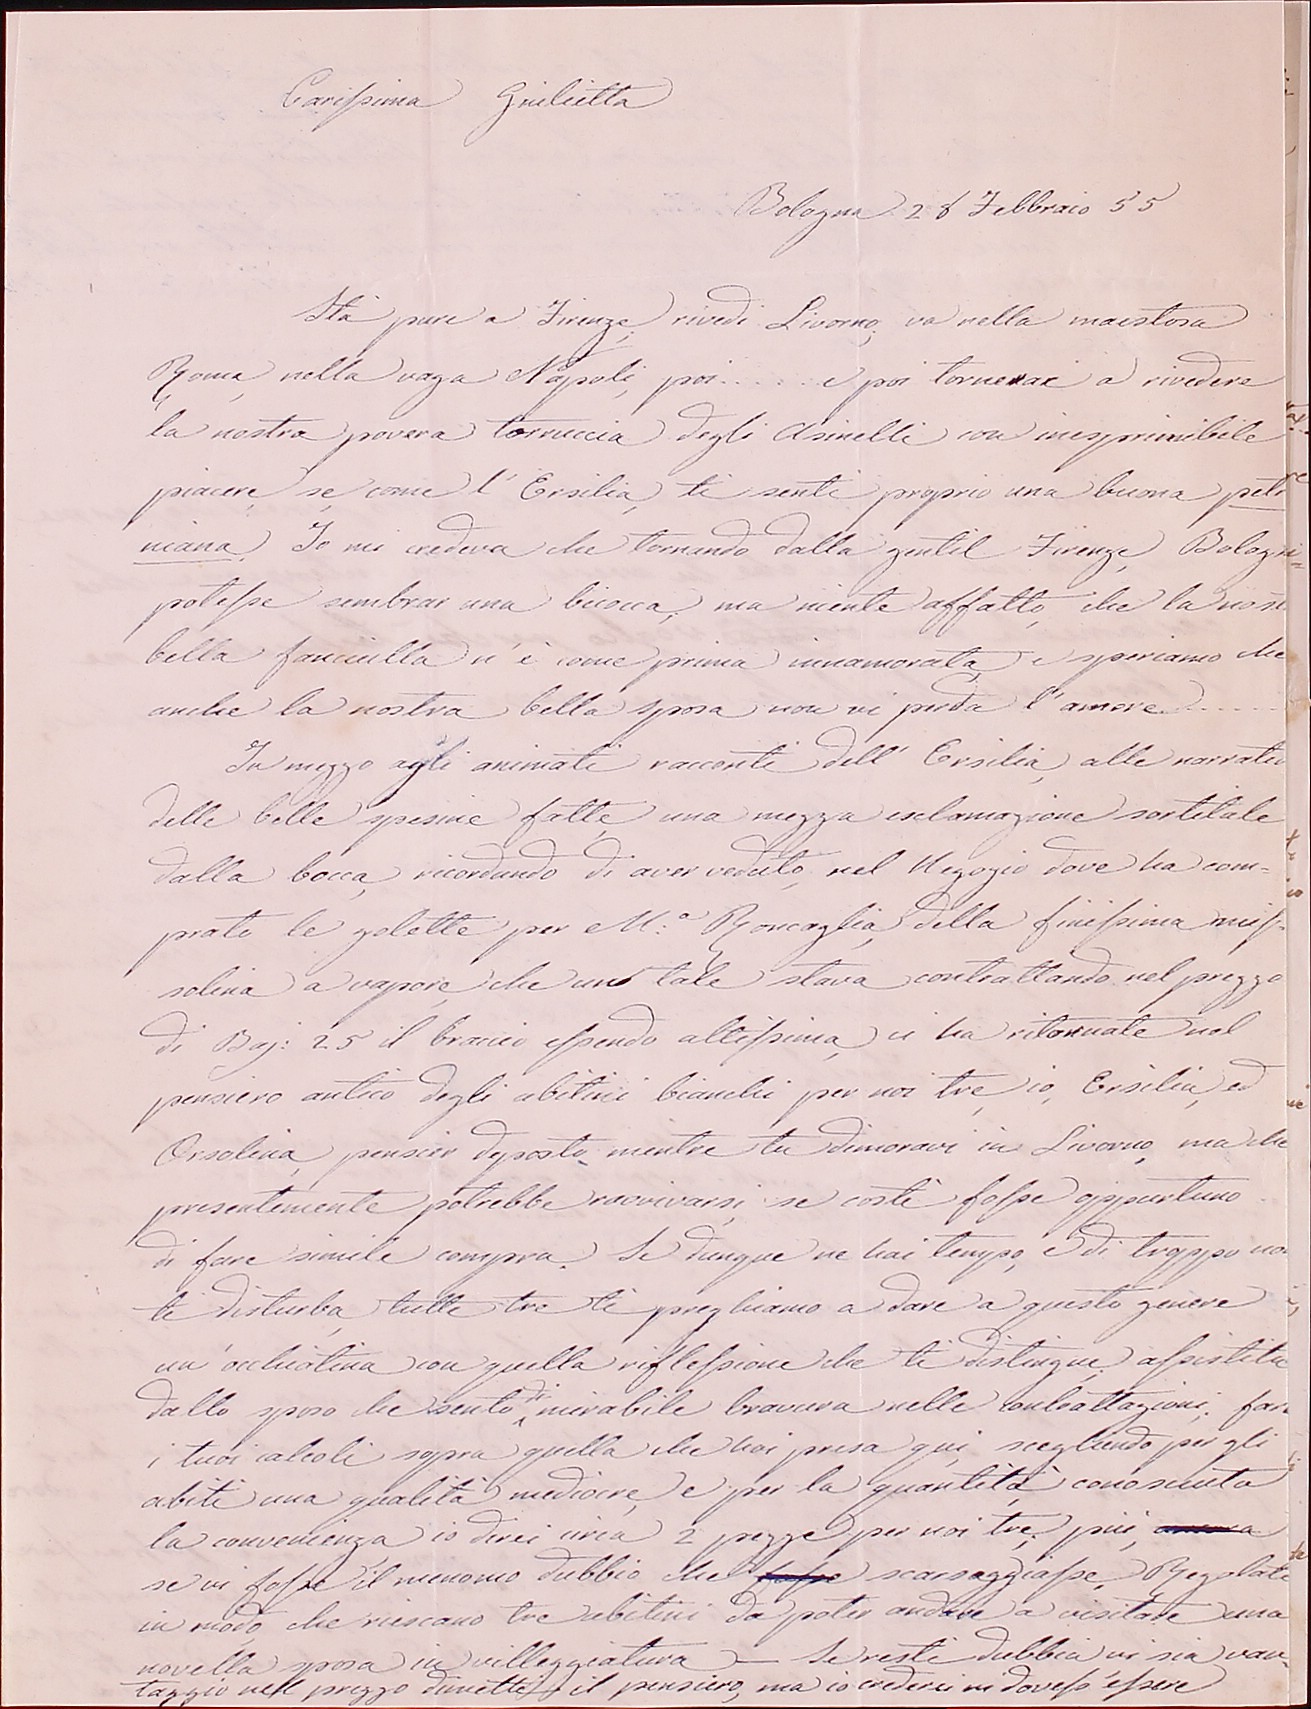 Carissima Giulietta
Bologna 28 Febbraio 55
Stà pure a Firenze, rivedi Livorno, va nella maestosa
Roma, nella vaga Napoli, poi..... e poi tornerai a rivedere
la nostra povera torruccia degli Asinelli con inesprimibile
piacere, se, come l'Ersilia, ti senti proprio una buona petro
niana. Io mi credeva che tornando dalla gentil Firenze, Bologna
potesse sembrar una bicocca, ma niente affatto, che la nostra
bella fanciulla n'è come prima innamorata, e speriamo che
anche la nostra bella sposa non vi perda l'amore.......
In mezzo agli animati racconti dell'Ersilia, alle narrative
delle belle spesine fatte, una mezza esclamazione sortitale
dalla bocca, ricordando di aver veduto, nel Negozio dove ha com-
prato le golette per M.a Roncaglia, della finissima mus-
solina a vapore, che un tale stava contrattando nel prezzo
di Baj: 25 il braccio essendo altissima, ci ha ritornate nel
pensiero antico degli abitini bianchi per noi tre, io, Ersilia, ed
Orsolina, pensier deposto, mentre tu dimoravi in Livorno, ma che
presentemente potrebbe ravvivarsi, se costì fosse oppurtuno
di fare simile compra. Se dunque ne hai tempo, e di troppo non
ti disturba, tutte tre ti preghiamo a dare a questo genere
un'occhiatina con quella riflessione che ti distingue, assistita
dallo sposo che sento di mirabile bravura nelle contrattazioni, far
i tuoi calcoli sopra quella che hai presa qui, scegliendo per gli
abiti una qualità mediocre, e per la quantità, conosciuta
la convenienza, io direi circa 2 pezze per noi tre, più,
se vi fosse il menomo dubbio che fosse scarseggiasse. Regolati
in modo, che riescano tre abitini da poter andare a visitare una
novella sposa in villeggiatura — Se resti dubbia vi sia van-
taggio nel prezzo dimetti il pensiero, ma io crederei vi dovess'essere